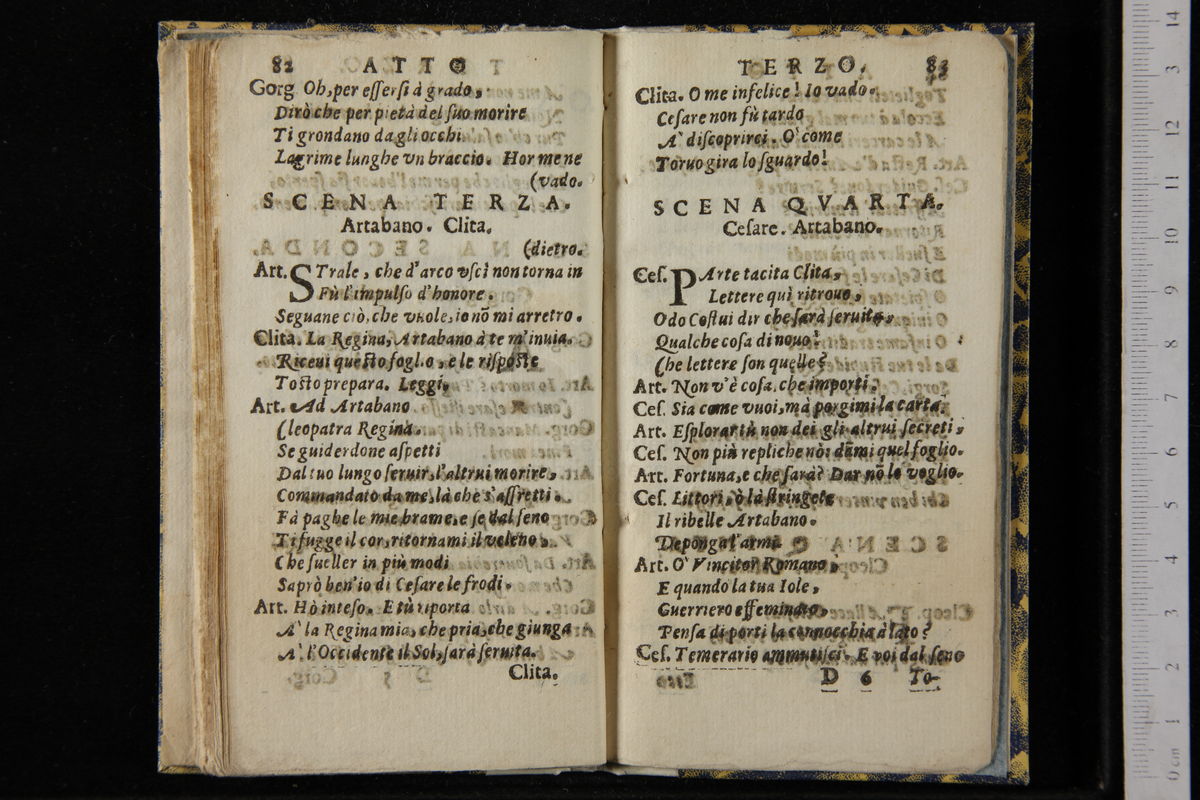 82 ATTO
Gorg Oh, per eſſerſi à grado,
Dirò che per pietà del ſuo morire
Ti grondano dagli occhi
Lagrime lunghe vn braccio. Hor me ne
(vado.
SCENA TERZA.
Artabano. Clita.
(dietro.
Art. STrale, che d'arco vſcì non torna in
Fù l'impulſo d'honore.
Seguane ciò, che vuole, io nõ mi arretro.
Clita. La Regina, Artabano à te m'inuia.
Riceui queſto foglio, e le riſpoſte
Toſto prepara. Leggi,
Art. Ad Artabano
Cleopatra Regina.
Se guiderdone aſpetti
Dal tuo lungo ſeruir, l'altrui morire,
Commandato da me, là che s'affretti.
Fà paghe le mie brame, e ſe dal ſeno
Ti fugge il cor, ritornami il veleno,
Che ſueller in più modi
Saprò ben'io di Ceſare le frodi.
Art. Hò inteſo. E tù riporta
A' la Regina mia, che pria, che giunga
A' l'Occidente il Sol, ſarà ſeruita.
Clita.
TERZO. 83
Clita. O me infelice! Io vado.
Ceſare non fù tardo
A' diſcoprirci. O' come
Toruo gira lo ſguardo!
SCENA QVARTA.
Ceſare. Artabano.
Ceſ. PArte tacita Clita,
Lettere quì ritrouo,
Odo Coſtui dir che ſarà ſeruita,
Qualche coſa di nouo!
Che lettere ſon quelle?
Art. Non v'è coſa, che importi.
Ceſ. Sia come vuoi, mà porgimi la carta.
Art. Eſplorar tù non dei gli altrui ſecreti,
Ceſ. Non più repliche nò: dãmi quel foglio.
Art. Fortuna, e che ſarà? Dar nõ lo voglio.
Ceſ. Littori, ò là ſtringete
Il ribelle Artabano.
Deponga l'armi.
Art. O' Vincitor Romano,
E quando la tua Iole,
Guerriero effeminato,
Penſa di porti la connocchia à lato?
Ceſ. Temerario ammutiſci. E voi dal ſeno
D 6 To-